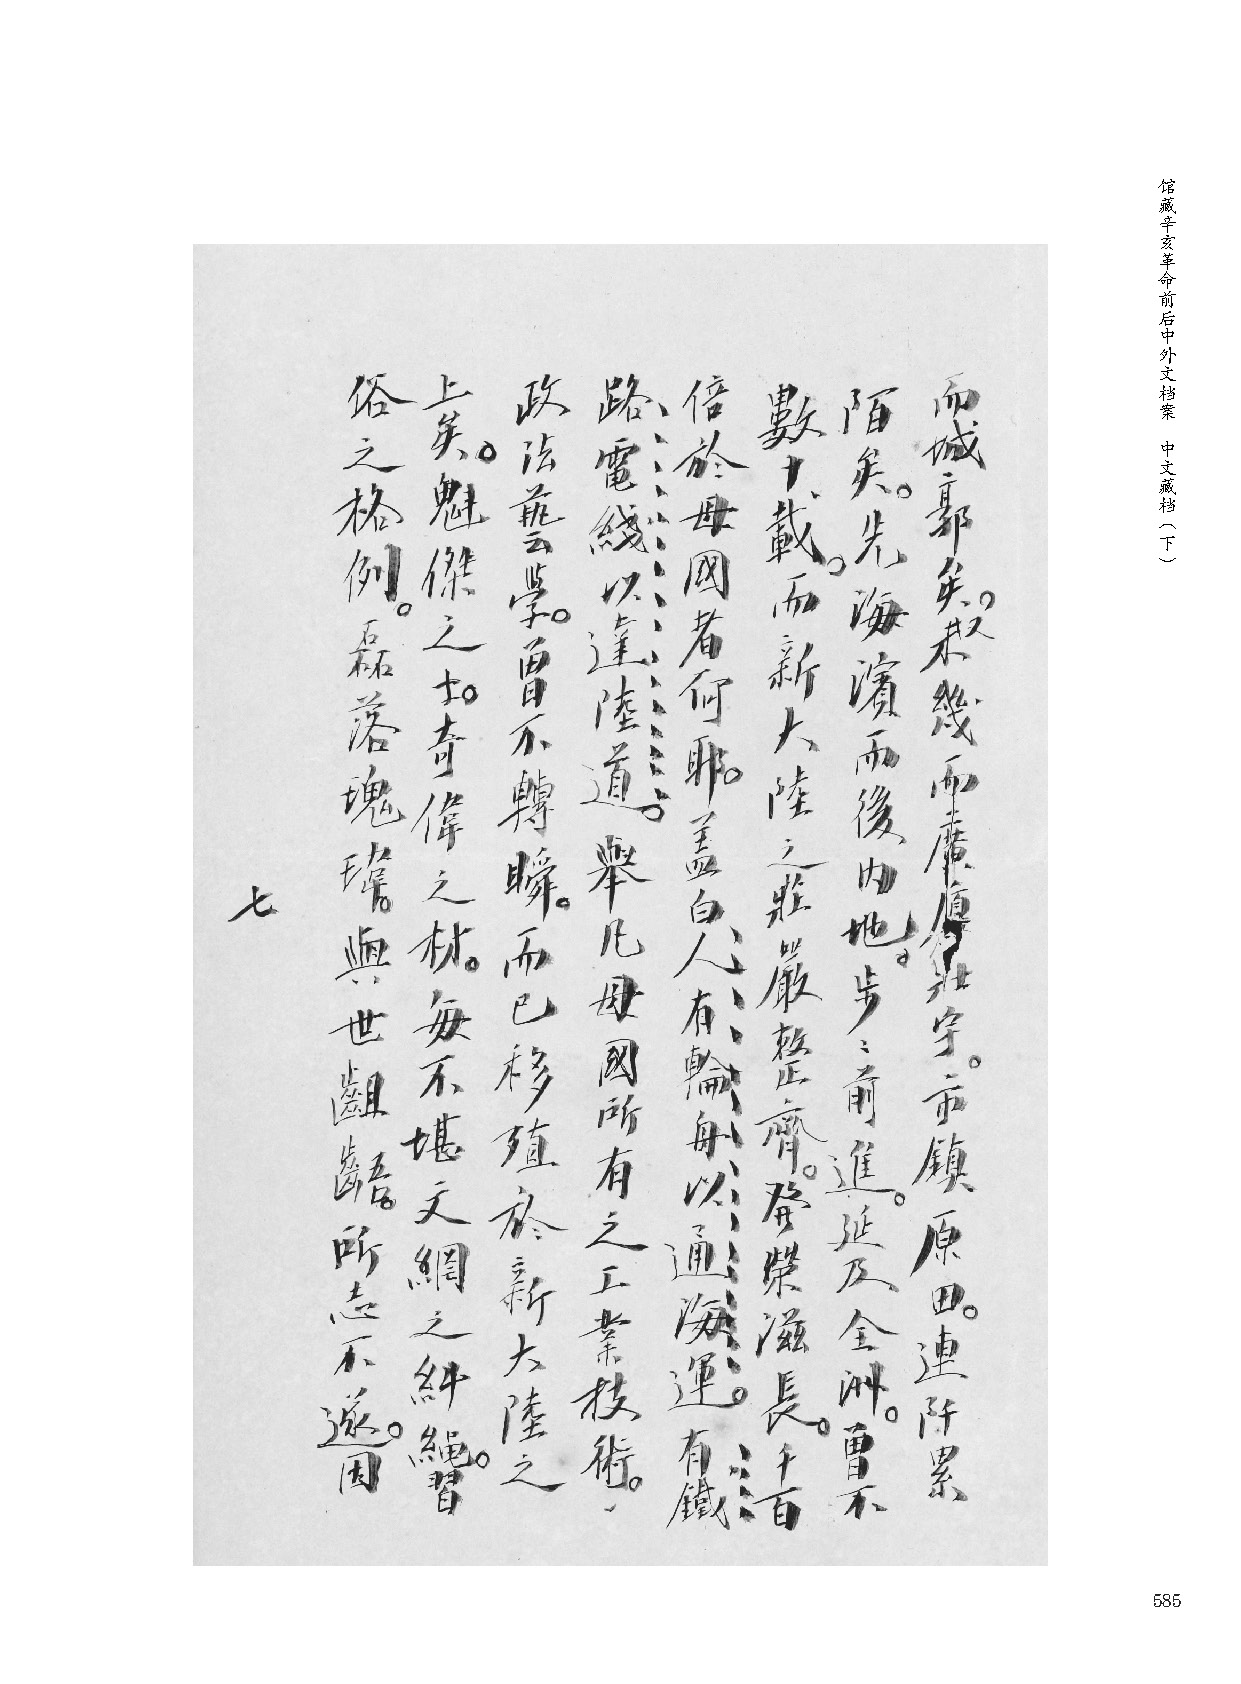 而城郭矣。又未幾而廣壯宇。市鎮原田。連阡累
陌矣。先海濱而後內地。步々前進。延及全洲。曾不
數十載。而新大陸之莊嚴整齊。發榮滋長。千百
倍於母國者何耶。蓋白人有輪舟以通海運。有鐵
路電綫以達陸道。舉凡母國所有之工業技術。
政法藝學。曾不轉瞬。而已移殖於新大陸之
上矣。魁傑之士。奇偉之材。每不堪文網之糾繩。習
俗之格例。磊落瑰瑋。與世齟齬。所志不遂。因
七
馆藏辛亥革命前后中外文档案 中文藏档（下）
585